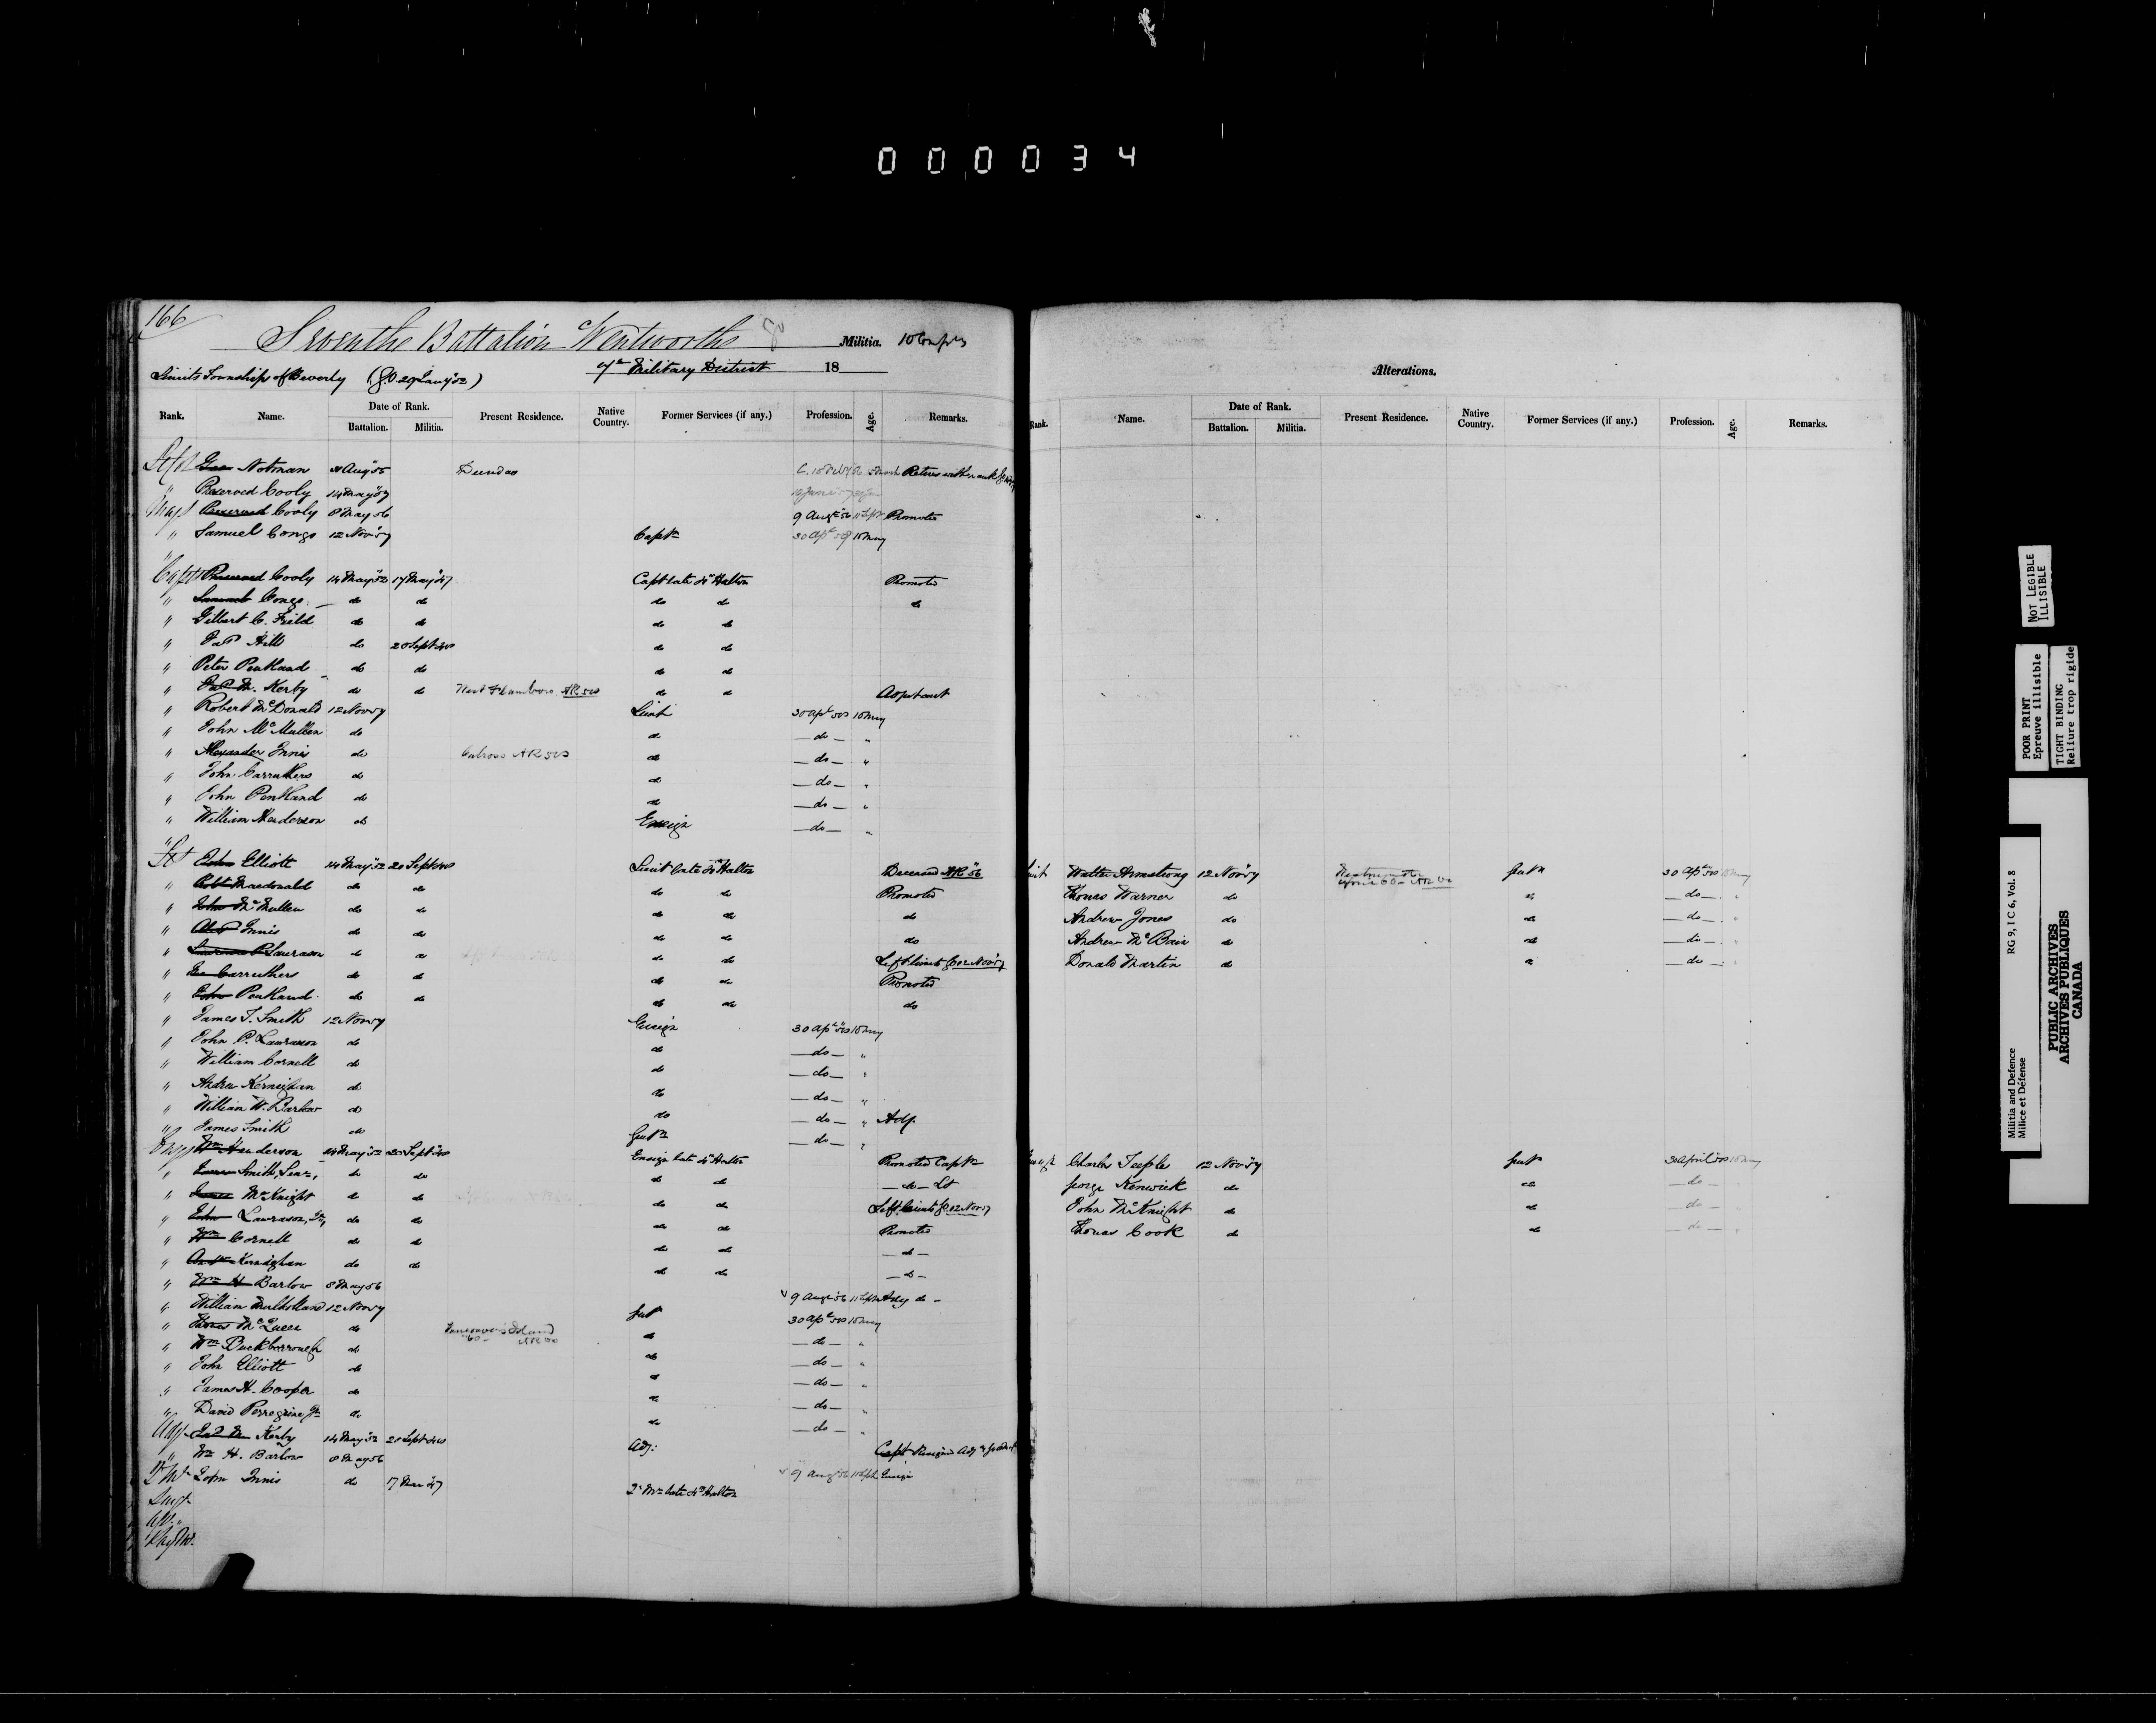 000034
166
Seventh Battalion Wentworth Militia. 10 Comps
7th Military District 18
Limits Township of Beverly (G.O. 29 Jany '52)
Alterations.
Rank. Name. Date of Rank. Present Residence. Native Country. Former Services (if any.) Profession. Age. Remarks.
Battalion. Militia.
Rank. Name. Date of Rank. Present Residence. Native Country. Former Services (if any.) Profession. Age. Remarks.
Battalion. Militia.
Notman Augt 56 Dundas Retires with rank
" Preserved Cooly 14 May 57
Maj Preserved Cooly 8 May 56 9 Augt 56 11 Sept Promoted
" Samuel Congo 12 Nov '57 Captn 30 Apl 58 15 May
"
Capts Preserved Cooly 14 May 52 17 May '47 Capt late 4th Halton Promoted
" Samuel Congo do do do do do
" Gilbert C. Field do do do do
" Jas Hill do 20 Sept 48 do do
" Peter Pentland do do do do
" Jas M. Kerby do do West Flamboro AR 58 do do Adjutant
" Robert McDonald 12 Nov 57 Lieut 30 Apl 58 15 May
" John McMullen do do do "
" Alexander Innis do Culross AR 58 do do "
" John Carruthers do do do "
" John Pentland do do do "
" William Henderson do Ensign do "
"
Lt John Elliott 14 May 52 20 Sept 48 Lieut late 4th Halton Deceased AR 56
" Robt Macdonald do do do do Promoted
" John McMullen do do do do do
" Alexr Innis do do do do do
" Lawrason do do do do Left limits G.O. 12 Nov '57
" Carruthers do do do do Promoted
" John Pentland do do do do do
" James T. Smith 12 Nov 57 Ensign 30 Apl 58 15 May
" John P. Lawrason do do do "
" William Cornell do do do "
" Andrew Kernighan do do do "
" William W. Barlow do do do " Adj.
" James Smith do Gentn do "
Ensgs Wm Henderson 14 May 52 20 Sept 48 Ensign late 4th Halton Promoted Captn
" James Smith, Senr, do do do do do Lt
" McKnight do do do do Left Limits G.O. 12 Nov 57
" John Lawrason, Jr, do do do do Promoted
" Wm Cornell do do do do do
" Andw Kernighan do do do do do
" Wm H Barlow 8 May 56 9 Augt 56 11 Sept Adj do
" William Mulholland 12 Nov 57 Gent 30 Apl 58 15 May
" Thomas McQueen do Vancouver's Island 60 AR 60 do do "
" Wm Buckborrough do do do "
" John Elliott do do do "
" James H. Cooper do do do "
" David Perregrine Jr do do do
Adj Jas M Kerby 14 May 52 20 Sept 48 Adj: Capt Resigned Adjy
" Wm H. Barlow 8 May 56 9 Augt 56 11 Sept Ensign
Qr Mr John Innis do 17 Mar 47 Qr Mr late 4th Halton
Surgn
Ast "
Lieut Walter Armstrong 12 Nov '57 Gentn 30 Apl 58 15 May
Thomas Warner do do do "
Andrew Jones do do do "
Andrew McBain do do do "
Donald Martin do do do "
Ensign Charles Teeple 12 Nov '57 Gentn 30 April 58 15 May
George Kenwick do do do
John McKnight do do do "
Thomas Cook do do do "
NOT LEGIBLE
ILLISIBLE
POOR PRINT
Epreuve illisible
TIGHT BINDING
Reliure trop rigide
Militia and Defence
Milice et Défense
RG 9, I C 6, Vol. 8
PUBLIC ARCHIVES
ARCHIVES PUBLIQUES
CANADA